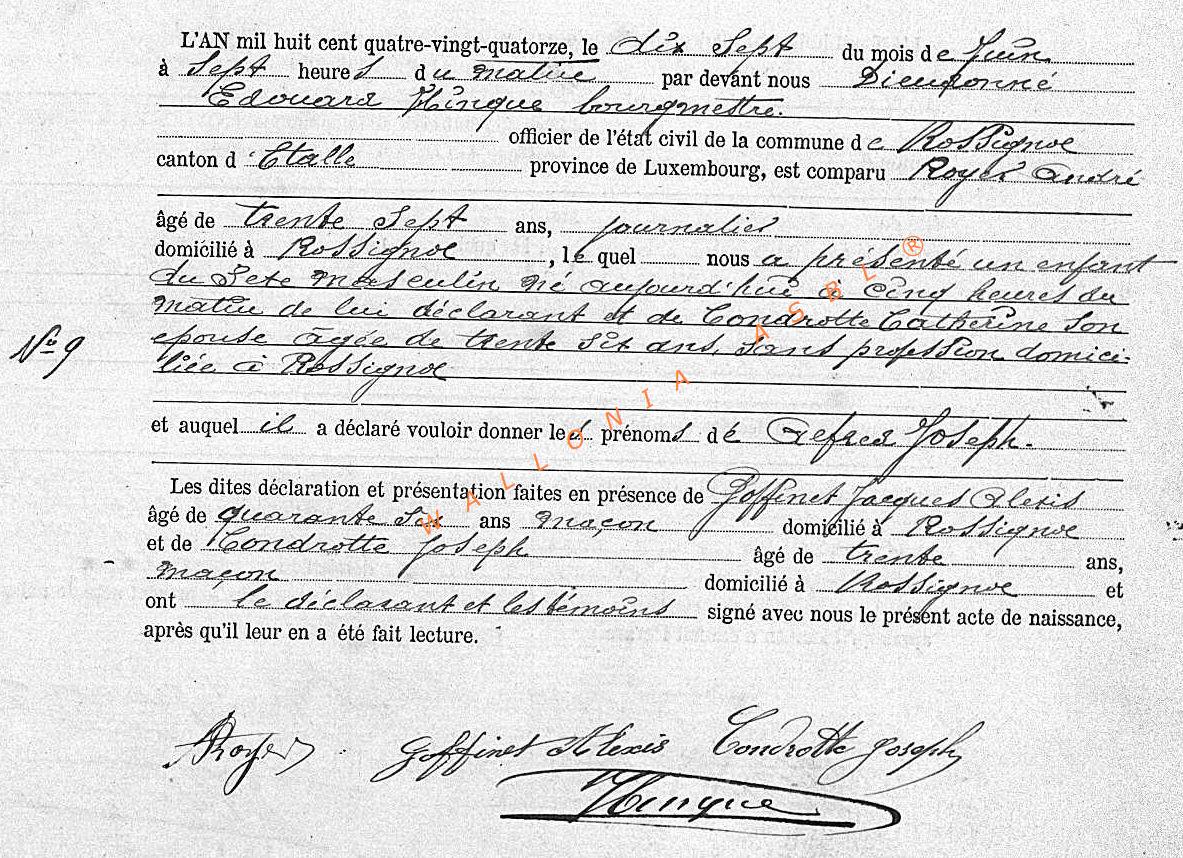 L'AN mil huit cent quatre-vingt-quatorze, le dix Sept du mois de Juin
à Sept heures du matin par devant nous Dieudonné
Edouard Hinque bourgmestre.
officier de l'état civil de la commune de Rossignol
canton d'Etalle province de Luxembourg, est comparu Royer André
âgé de trente Sept ans, journalier
domicilié à Rossignol, lequel nous a présenté un enfant
du Sexe masculin né aujourd'hui à Cinq heures du
matin de lui déclarant et de Condrotte Catherine Son
epouse âgée de trente Six ans, Sans profession domici-
liée à Rossignol
No 9
et auquel il a déclaré vouloir donner les prénoms de Alfred Joseph.
Les dites déclaration et présentation faites en présence de Goffinet Jacques Alexis
âgé de quarante Six ans maçon domicilié à Rossignol
et de Condrotte Joseph âgé de trente ans,
maçon domicilié à Rossignol et
ont le déclarant et les témoins signé avec nous le présent acte de naissance,
après qu'il leur en a été fait lecture.
ARoyer Goffinet Alexis Condrotte Joseph
Hinque
WALLONIA ASBL ®